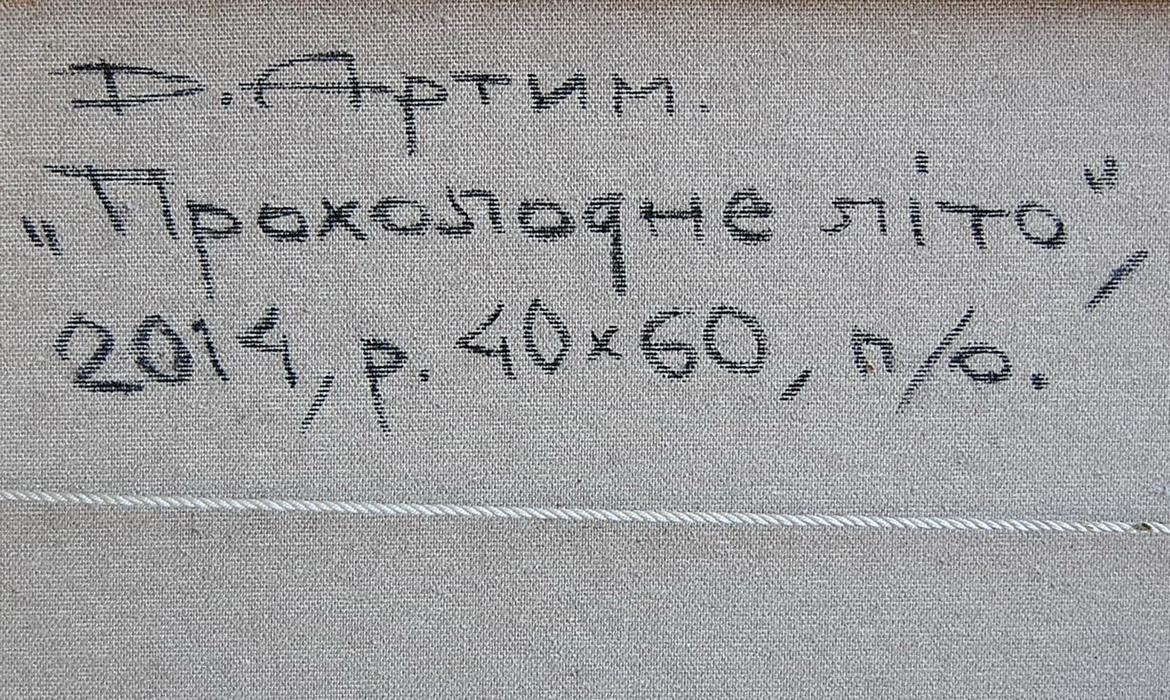 Д. Артим.
„Прохолодне літо",
2014, р. 40х60, п/о.